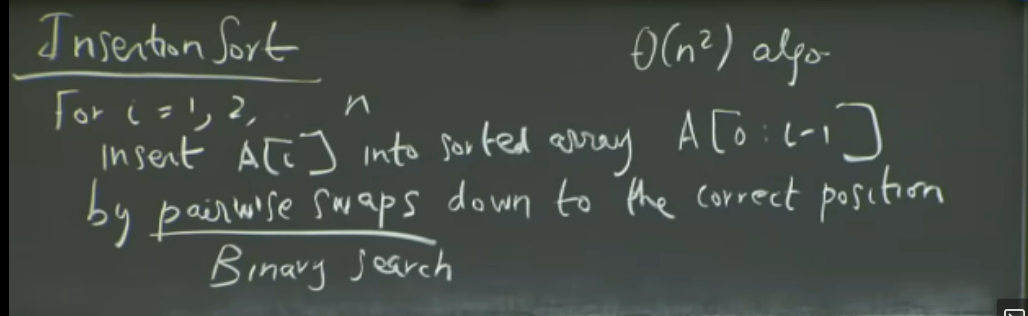 Insertion Sort
θ(n²) algo
For i = 1, 2, .. n
insert A[i] into sorted array A[0:i-1]
by pairwise swaps down to the correct position
Binary search